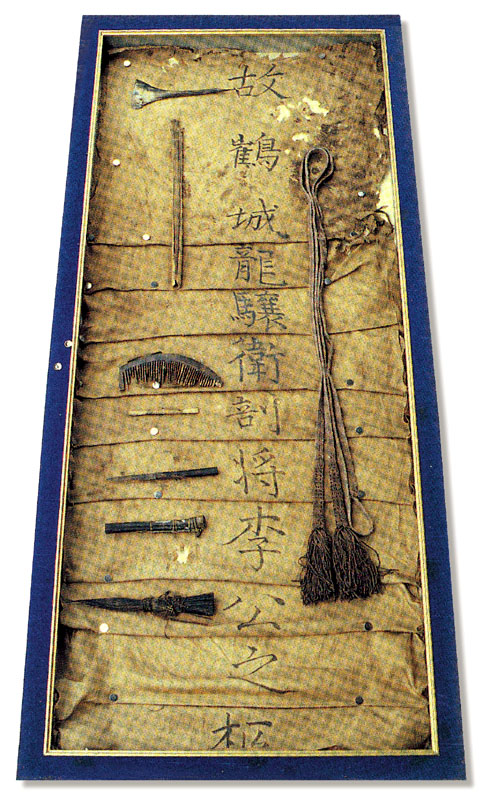 故鶴城龍驤衛剖将李公之柩